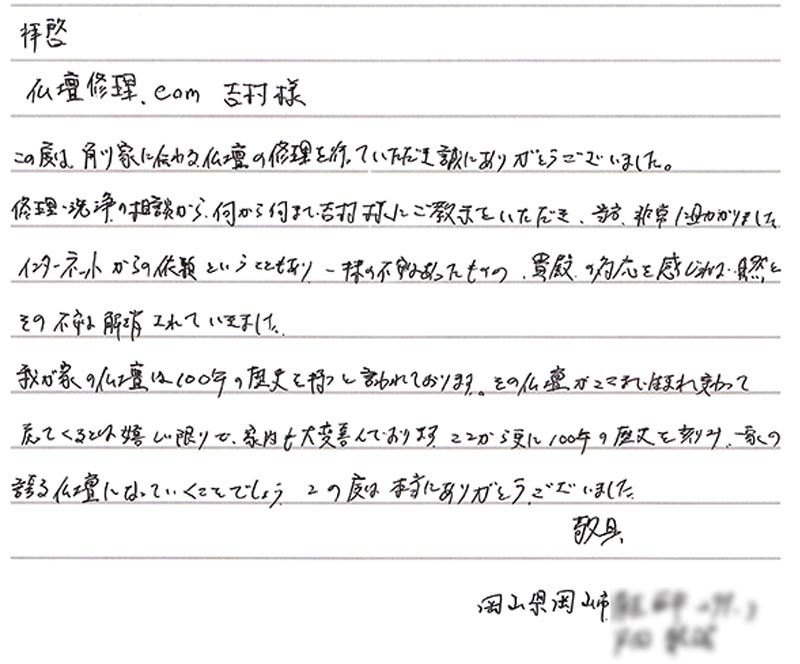 拝啓
仏壇修理.com 吉村様
この度は、角川家に伝わる仏壇の修理を行っていただき誠にありがとうございました。
修理・洗浄の相談から、何から何まで吉村様にご教示をいただき、当方、非常に助かりました
インターネットからの依頼ということもあり、一抹の不安はあったものの、貴殿の対応を感じれば、自然と
その不安は解消されていきました。
我が家の仏壇は100年の歴史を持つと言われております。その仏壇がここまで生まれ変わって
戻ってくるとは嬉しい限りで、家内も大変喜んでおります。ここから更に100年の歴史を刻み、一家の
誇る仏壇になっていくことでしょう この度は本当にありがとうございました。
敬具
岡山県岡山市